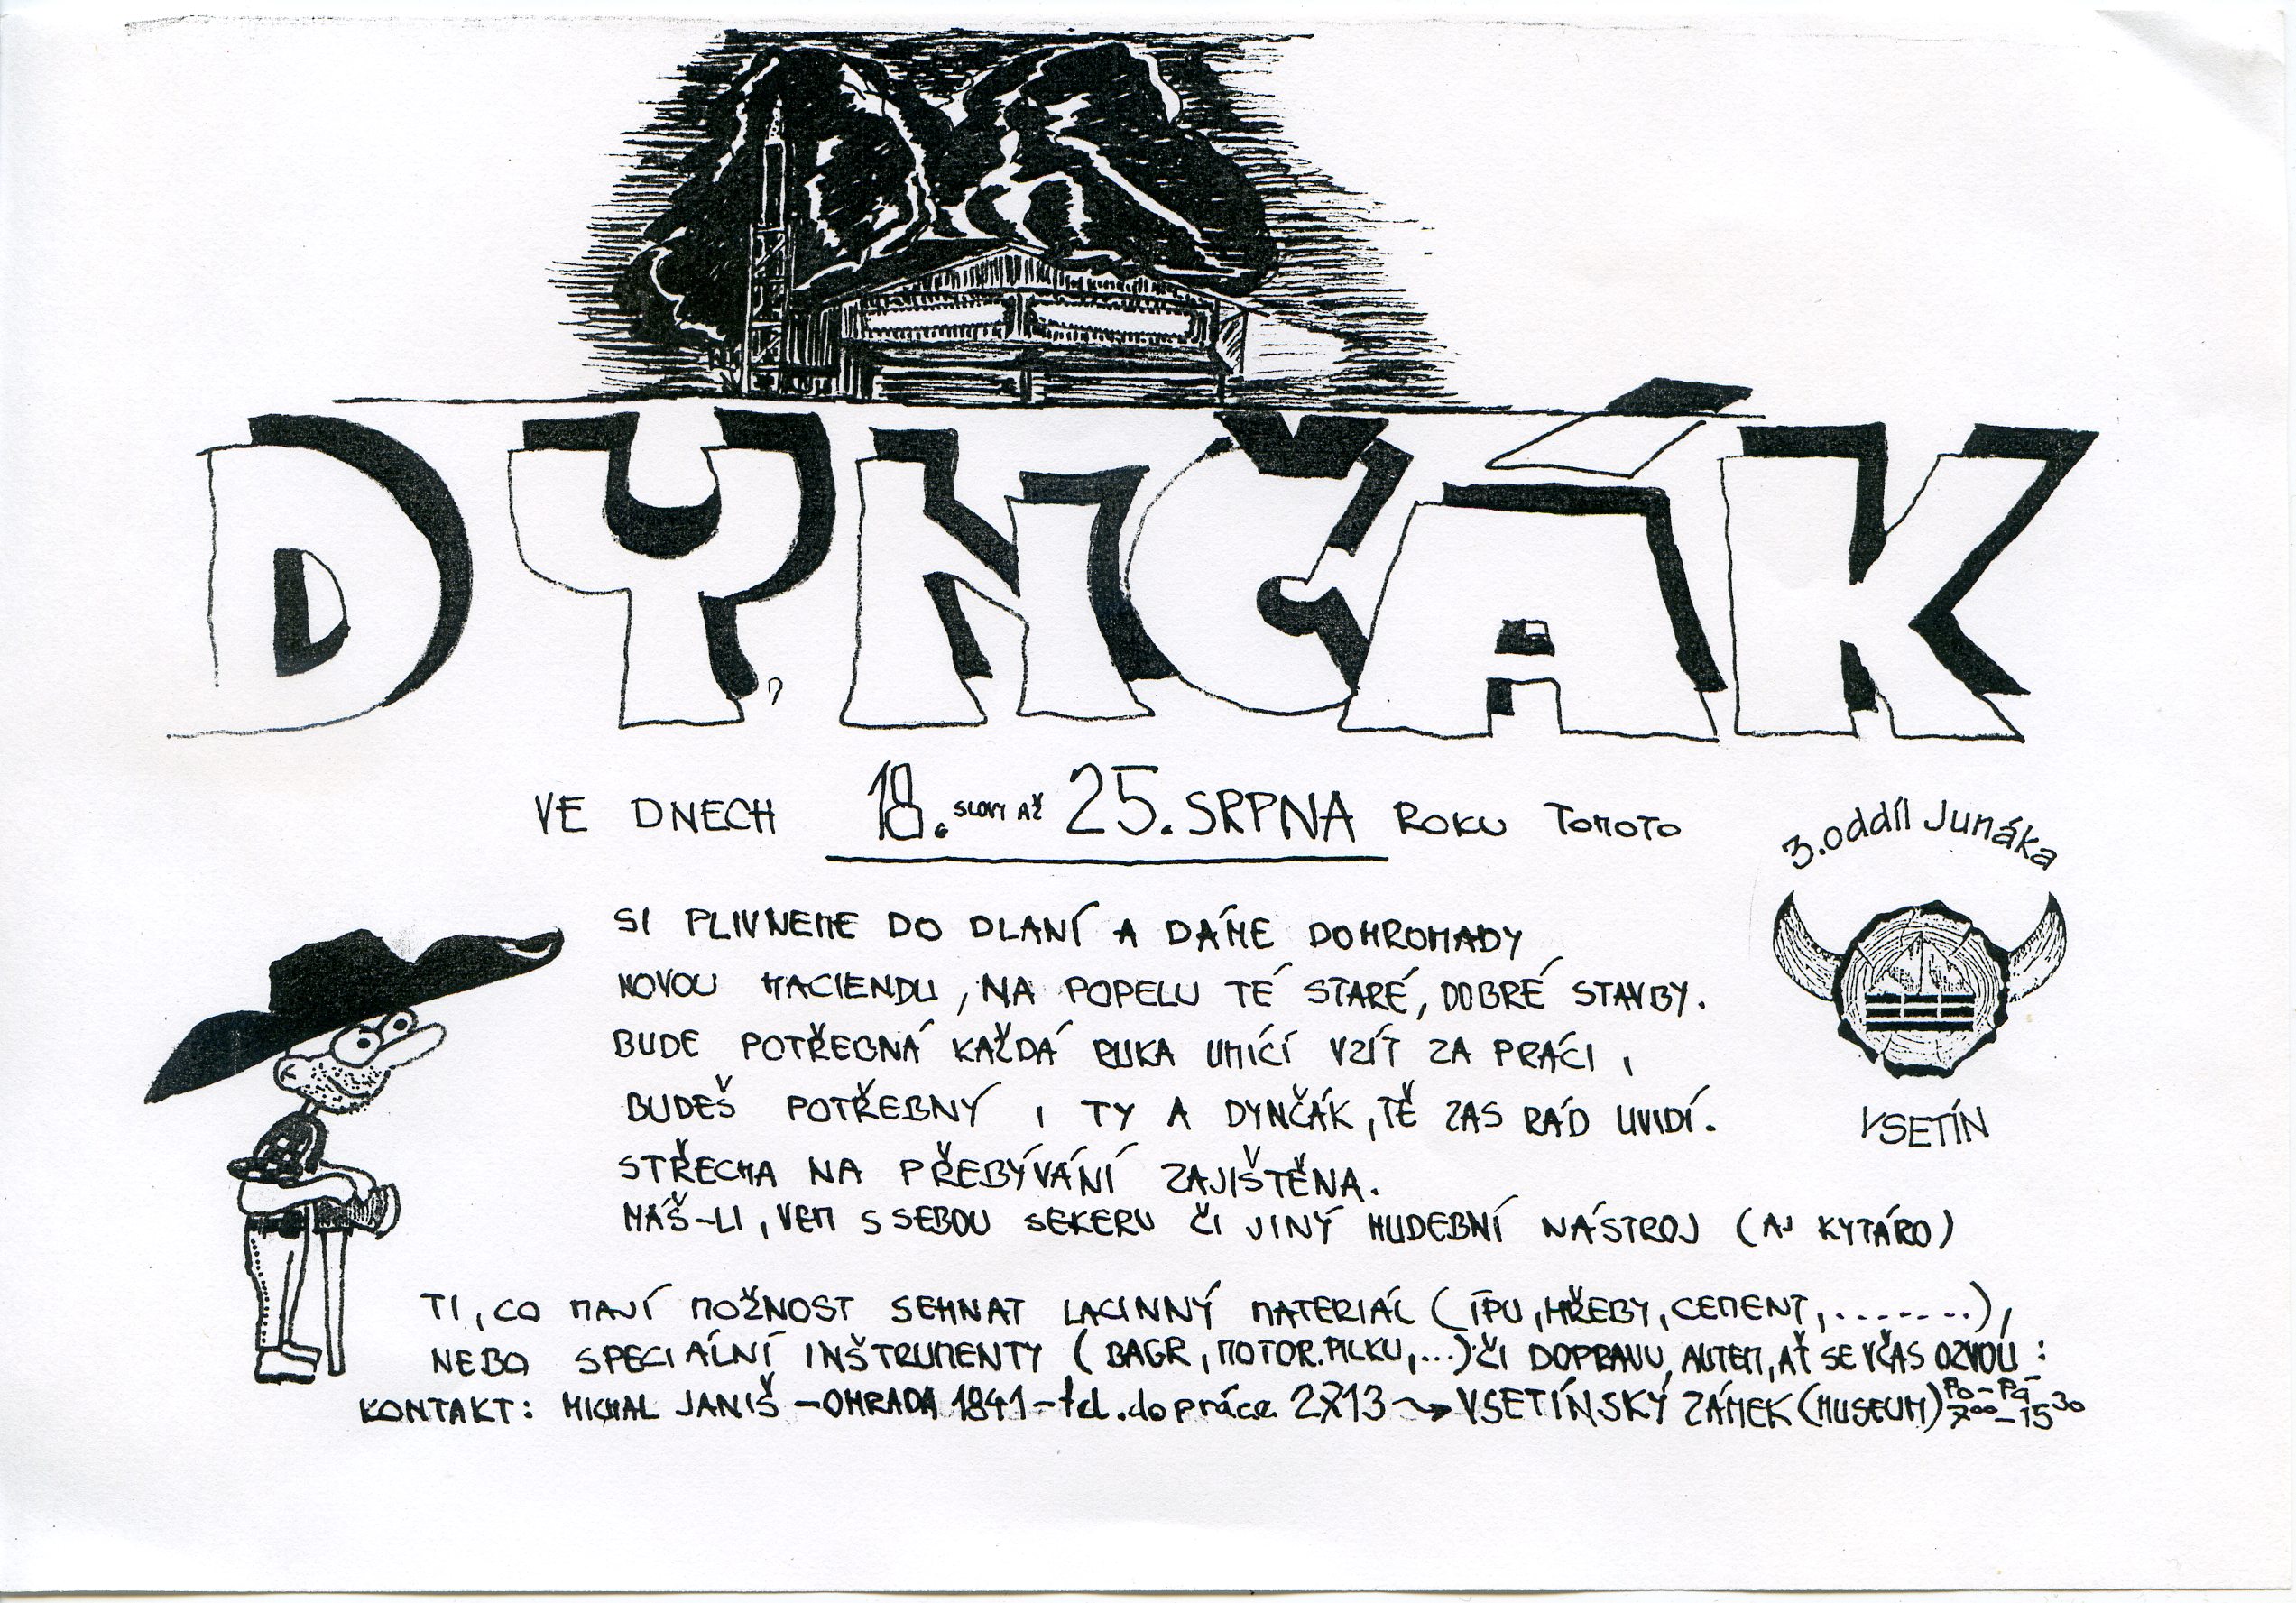 DYNČÁK
VE DNECH 18. SLOVY AŽ 25. SRPNA ROKU TOHOTO
3. oddíl Junáka
SI PLIVNEME DO DLANÍ A DÁME DOHROMADY
NOVOU HACIENDU, NA POPELU TÉ STARÉ, DOBRÉ STAVBY.
BUDE POTŘEBNÁ KAŽDÁ RUKA UMÍCÍ VZÍT ZA PRÁCI,
BUDEŠ POTŘEBNÝ I TY A DYNČÁK, TĚ ZAS RÁD UVIDÍ.
VSETÍN
STŘECHA NA PŘEBÝVÁNÍ ZAJIŠTĚNA.
MÁŠ-LI, VEM S SEBOU SEKERU ČI JINÝ HUDEBNÍ NÁSTROJ (AJ KYTÁRO)
TI, CO MAJÍ MOŽNOST SEHNAT LACINNÝ MATERIÁL (ÍPU, HŘEBY, CEMENT, .......),
NEBO SPECIÁLNÍ INŠTRUMENTY (BAGR, MOTOR. PILKU, ...) ČI DOPRAVU, AUTEM, AŤ SE VČAS OZVOU:
KONTAKT: MICHAL JANIŠ – OHRADA 1841 – tel. do práce 2713 → VSETÍNSKÝ ZÁMEK (MUSEUM) PO – PÁ 7⁰⁰ – 15³⁰